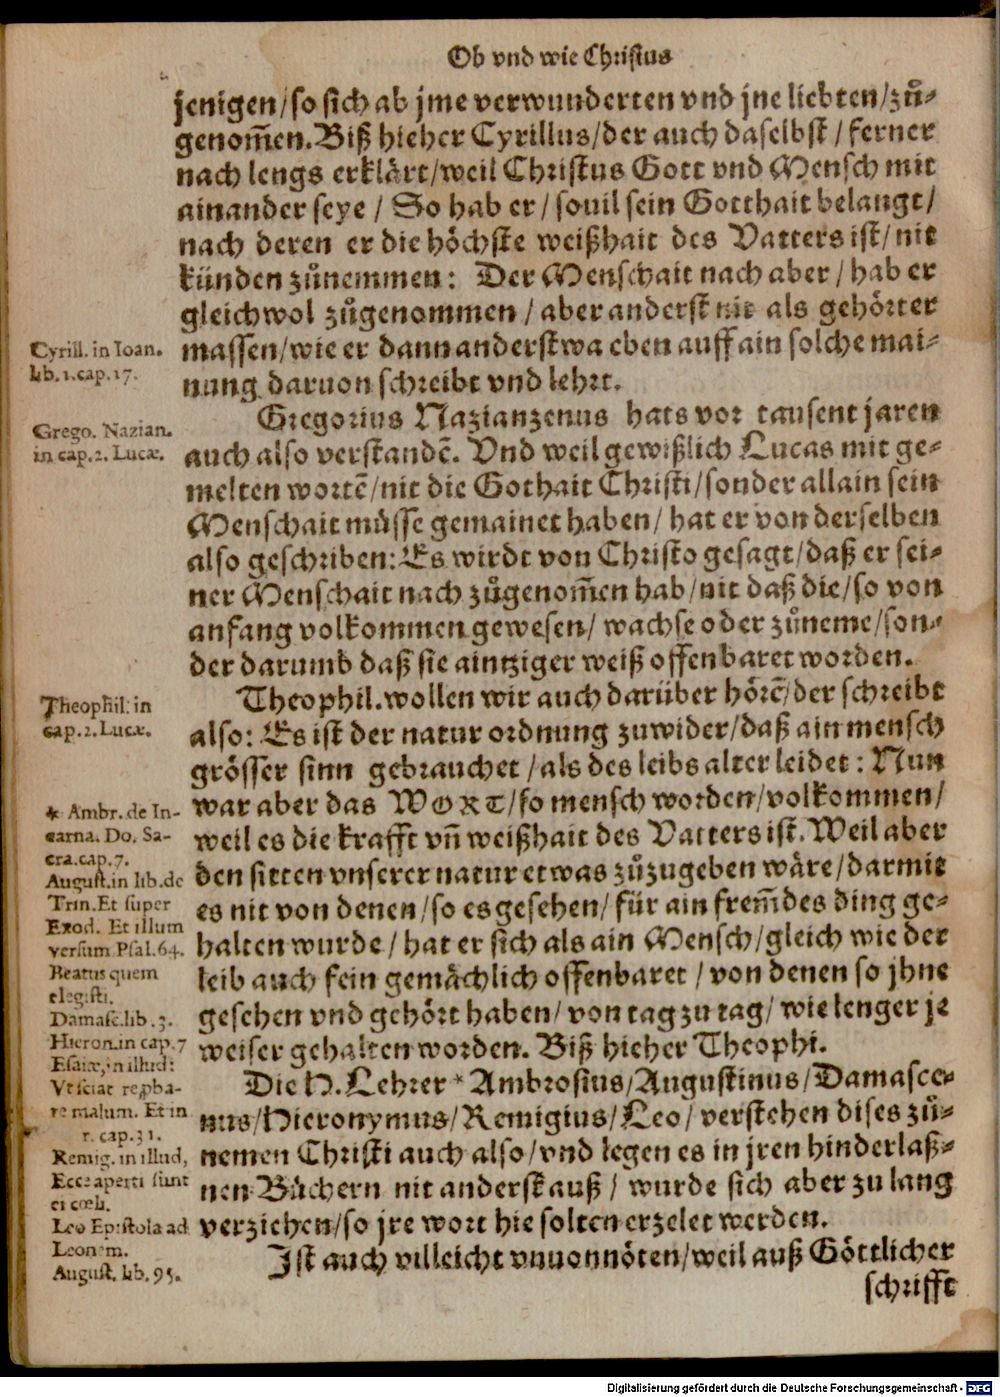 Ob vnd wie Christus
jenigen/so sich ab jme verwunderten vnd jne liebten/zů-
genom̃en. Biß hieher Cyrillus/der auch daselbst/ferner
nach lengs erklärt/weil Christus Gott vnd Mensch mit
ainander seye / So hab er / souil sein Gotthait belangt/
nach deren er die höchste weißhait des Vatters ist/nit
künden zůnemmen: Der Menschait nach aber / hab er
gleichwol zůgenommen / aber anderst nit als gehörter
massen/wie er dann anderstwa eben auff ain solche mai-
nung daruon schreibt vnd lehrt.
Cyrill. in Ioan.
lib. 1. cap. 17.
Gregorius Nazianzenus hats vor tausent jaren
auch also verstandẽ. Vnd weil gewißlich Lucas mit ge-
melten wortẽ/nit die Gothait Christi/sonder allain sein
Menschait müsse gemainet haben/ hat er von derselben
also geschriben: Es wirdt von Christo gesagt/daß er sei-
ner Menschait nach zůgenom̃en hab/nit daß die/so von
anfang volkommen gewesen/ wachse oder zůneme/son-
der darumb daß sie aintziger weiß offenbaret worden.
Grego. Nazian.
in cap. 2. Lucæ.
Theophil. wollen wir auch darüber hörẽ/der schreibt
also: Es ist der natur ordnung zuwider/daß ain mensch
grösser sinn gebrauchet / als des leibs alter leidet: Nun
war aber das WORT/so mensch worden/volkommen/
weil es die krafft vñ weißhait des Vatters ist. Weil aber
den sitten vnserer natur etwas zůzugeben wäre/darmit
es nit von denen/so es gesehen/für ain frem̃des ding ge-
halten wurde / hat er sich als ain Mensch/gleich wie der
leib auch fein gemächlich offenbaret / von denen so jhne
gesehen vnd gehört haben/ von tag zu tag/ wie lenger je
weiser gehalten worden. Biß hieher Theophi.
Theophil. in
cap. 2. Lucæ.
Die H. Lehrer * Ambrosius/Augustinus/Damasce-
nus/Hieronymus/Remigius/Leo/ verstehen dises zů-
nemen Christi auch also/vnd legen es in jren hinderlaß-
nen Büchern nit anderst auß / wurde sich aber zu lang
verziehen/so jre wort hie solten erzelet werden.
* Ambr. de In-
carna. Do. Sa-
cra. cap. 7.
August. in lib. de
Trin. Et super
Exod. Et illum
versum Psal. 64.
Beatus quem
elegisti.
Damasc. lib. 3.
Hieron. in cap. 7
Esaiæ, in illud:
Vt sciat reproba-
re malum. Et in
cap. 31.
Remig. in illud,
Ecce aperti sunt
ei cœli.
Leo Epistola ad
Leonem.
August. lib. 95.
Ist auch villeicht vnuonnöten/weil auß Göttlicher
schrifft
Digitalisierung gefördert durch die Deutsche Forschungsgemeinschaft - DFG